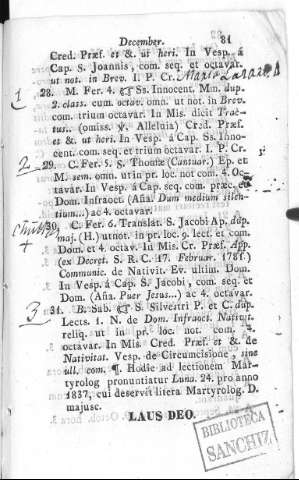 December. 81
Cred. Præf. et &. ut heri. In Vesp. á
Cap. S. Joannis, com. seq. et octavar.
ut not. in Brev. I. P. Cr.
1 28. M. Fer. 4. SS. Innocent. Mm. dup.
2. class. cum. octav. omn. ut not. in Brev.
com. trium octavar. In Mis. dicit Trac-
tus.. (omiss. ℣. Alleluia) Cred. Præf.
et &. ut heri. In Vesp. á Cap. Ss. Inno-
cent. com. seq. et trium octavar. I. P. Cr.
2 29. C. Fer. 5. S. Thomæ (Cantuar.) Ep. et
M. sem. omn. ut in pr. loc. not com. 4. Oc-
tavár. In Vesp. á Cap. seq. com. præc. et
Dom. Infraoct. (Aña. Dum medium silen-
tium...) ac 4. octavar.
4 30. C. Fer. 6. Translat. S. Jacobi Ap. dup.
maj. (H.) ut not. in pr. loc. 9. lect. et com.
Dom. et 4. octav. In Mis. Cr. Præf. App.
(ex Decret. S. R. C. 17. Februar. 1781.)
Communic. de Nativit. Ev. ultim. Dom.
In Vesp. á Cap. S. Jacobi, com. seq. et
Dom. (Aña. Puer Jesus...) ac 4. octavar.
3 31. B. Sab. S. Silvestri P. et C. dup.
Lects. 1. N. de Dom. Infraoct. Nativit.
reliq. ut in pr. loc. not. com. 4.
octavar. In Mis. Cred. Præf. et &. de
Nativitat. Vesp. de Circumcisione, sine
ull. com. ¶. Hodie ad lectionem Mar-
tyrolog pronuntiatur Luna. 24. pro anno
1837, cui deservit litera Martyrolog. D.
majusc.
LAUS DEO.
BIBLIOTECA
SANCHIZ